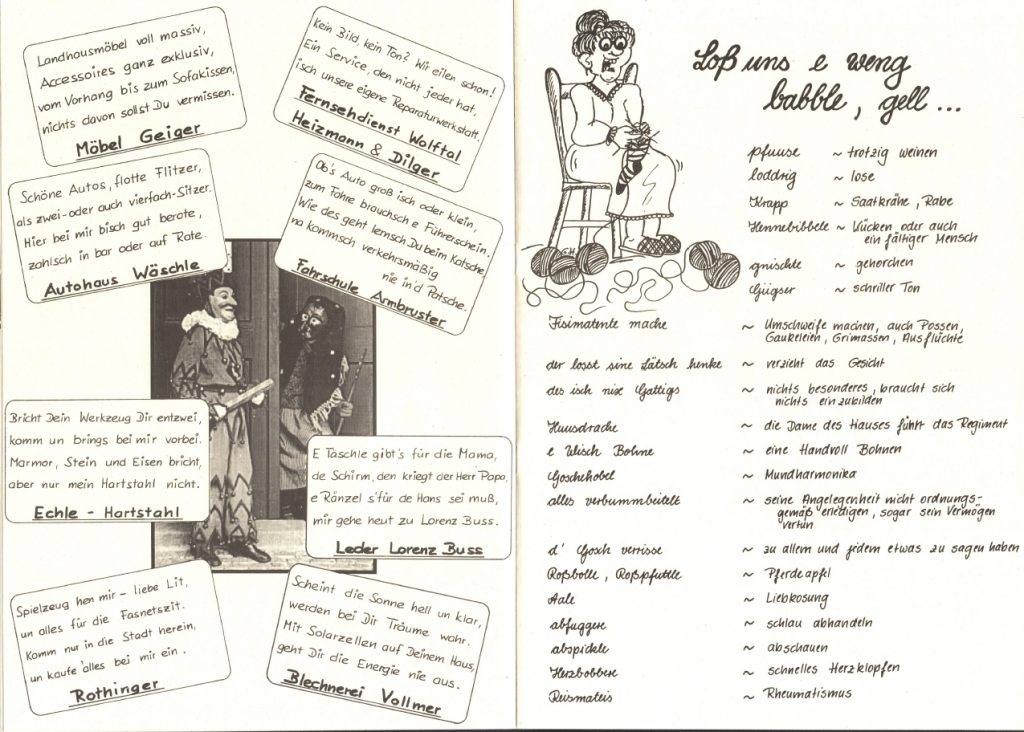 Landhausmöbel voll massiv,
Accessoires ganz exklusiv,
vom Vorhang bis zum Sofakissen,
nichts davon sollst Du vermissen.
Möbel Geiger
Kein Bild, kein Ton? Wir eilen schon!
Ein Service, den nicht jeder hat,
isch unsere eigene Reparaturwerkstatt.
Fernsehdienst Wolftal
Heizmann & Dilger
Schöne Autos, flotte Flitzer,
als zwei- oder auch vierfach-Sitzer.
Hier bei mir bisch gut berote,
zahlsch in bar oder auf Rate.
Autohaus Wäschle
Ob's Auto groß isch oder klein,
zum Fahre brauchsch e Führerschein.
Wie des geht lernsch Du beim Katsche,
na kommsch verkehrsmäßig
nie in d' Patsche.
Fahrschule Armbruster
Bricht Dein Werkzeug Dir entzwei,
komm un brings bei mir vorbei.
Marmor, Stein und Eisen bricht,
aber nur mein Hartstahl nicht.
Echle - Hartstahl
E Taschle gibt's für die Mama,
de Schirm, den kriegt der Herr Papa,
e Ränzel s'für de Hans sei muß,
mir gehe heut zu Lorenz Buss.
Leder Lorenz Buss
Spielzeug hen mir - liebe Lit,
un alles für die Fasnetszit.
Komm nur in die Stadt herein,
un kaufe 'alles bei mir ein.
Rothinger
Scheint die Sonne hell un klar,
werden bei Dir Träume wahr.
Mit Solarzellen auf Deinem Haus,
geht Dir die Energie nie aus.
Blechnerei Vollmer
Loß uns e weng
babble, gell ...
pfuuse ~ trotzig weinen
loddrig ~ lose
Krapp ~ Saatkrähe, Rabe
Hennebibbele ~ Kücken oder auch
ein fältiger Mensch
gnischte ~ gehorchen
Gügser ~ schriller Ton
Fisimatente mache ~ Umschweife machen, auch Possen,
Gaukeleien, Grimassen, Ausflüchte
der losst sine Lätsch henke ~ verzieht das Gesicht
des isch nix Gattigs ~ nichts besonderes, braucht sich
nichts einzubilden
Huusdrache ~ die Dame des Hauses führt das Regiment
e Wisch Bohne ~ eine Handvoll Bohnen
Goschehobel ~ Mundharmonika
alles verbummbeitelt ~ seine Angelegenheit nicht ordnungs-
gemäß erledigen, sogar sein Vermögen
vertun
d' Gosch verrisse ~ zu allem und jedem etwas zu sagen haben
Roßbolle, Roßpfuttle ~ Pferdeapfel
Aale ~ Liebkosung
abfuggere ~ schlau abhandeln
abspickle ~ abschauen
Herzbobbere ~ schnelles Herzklopfen
Reismateis ~ Rheumatismus